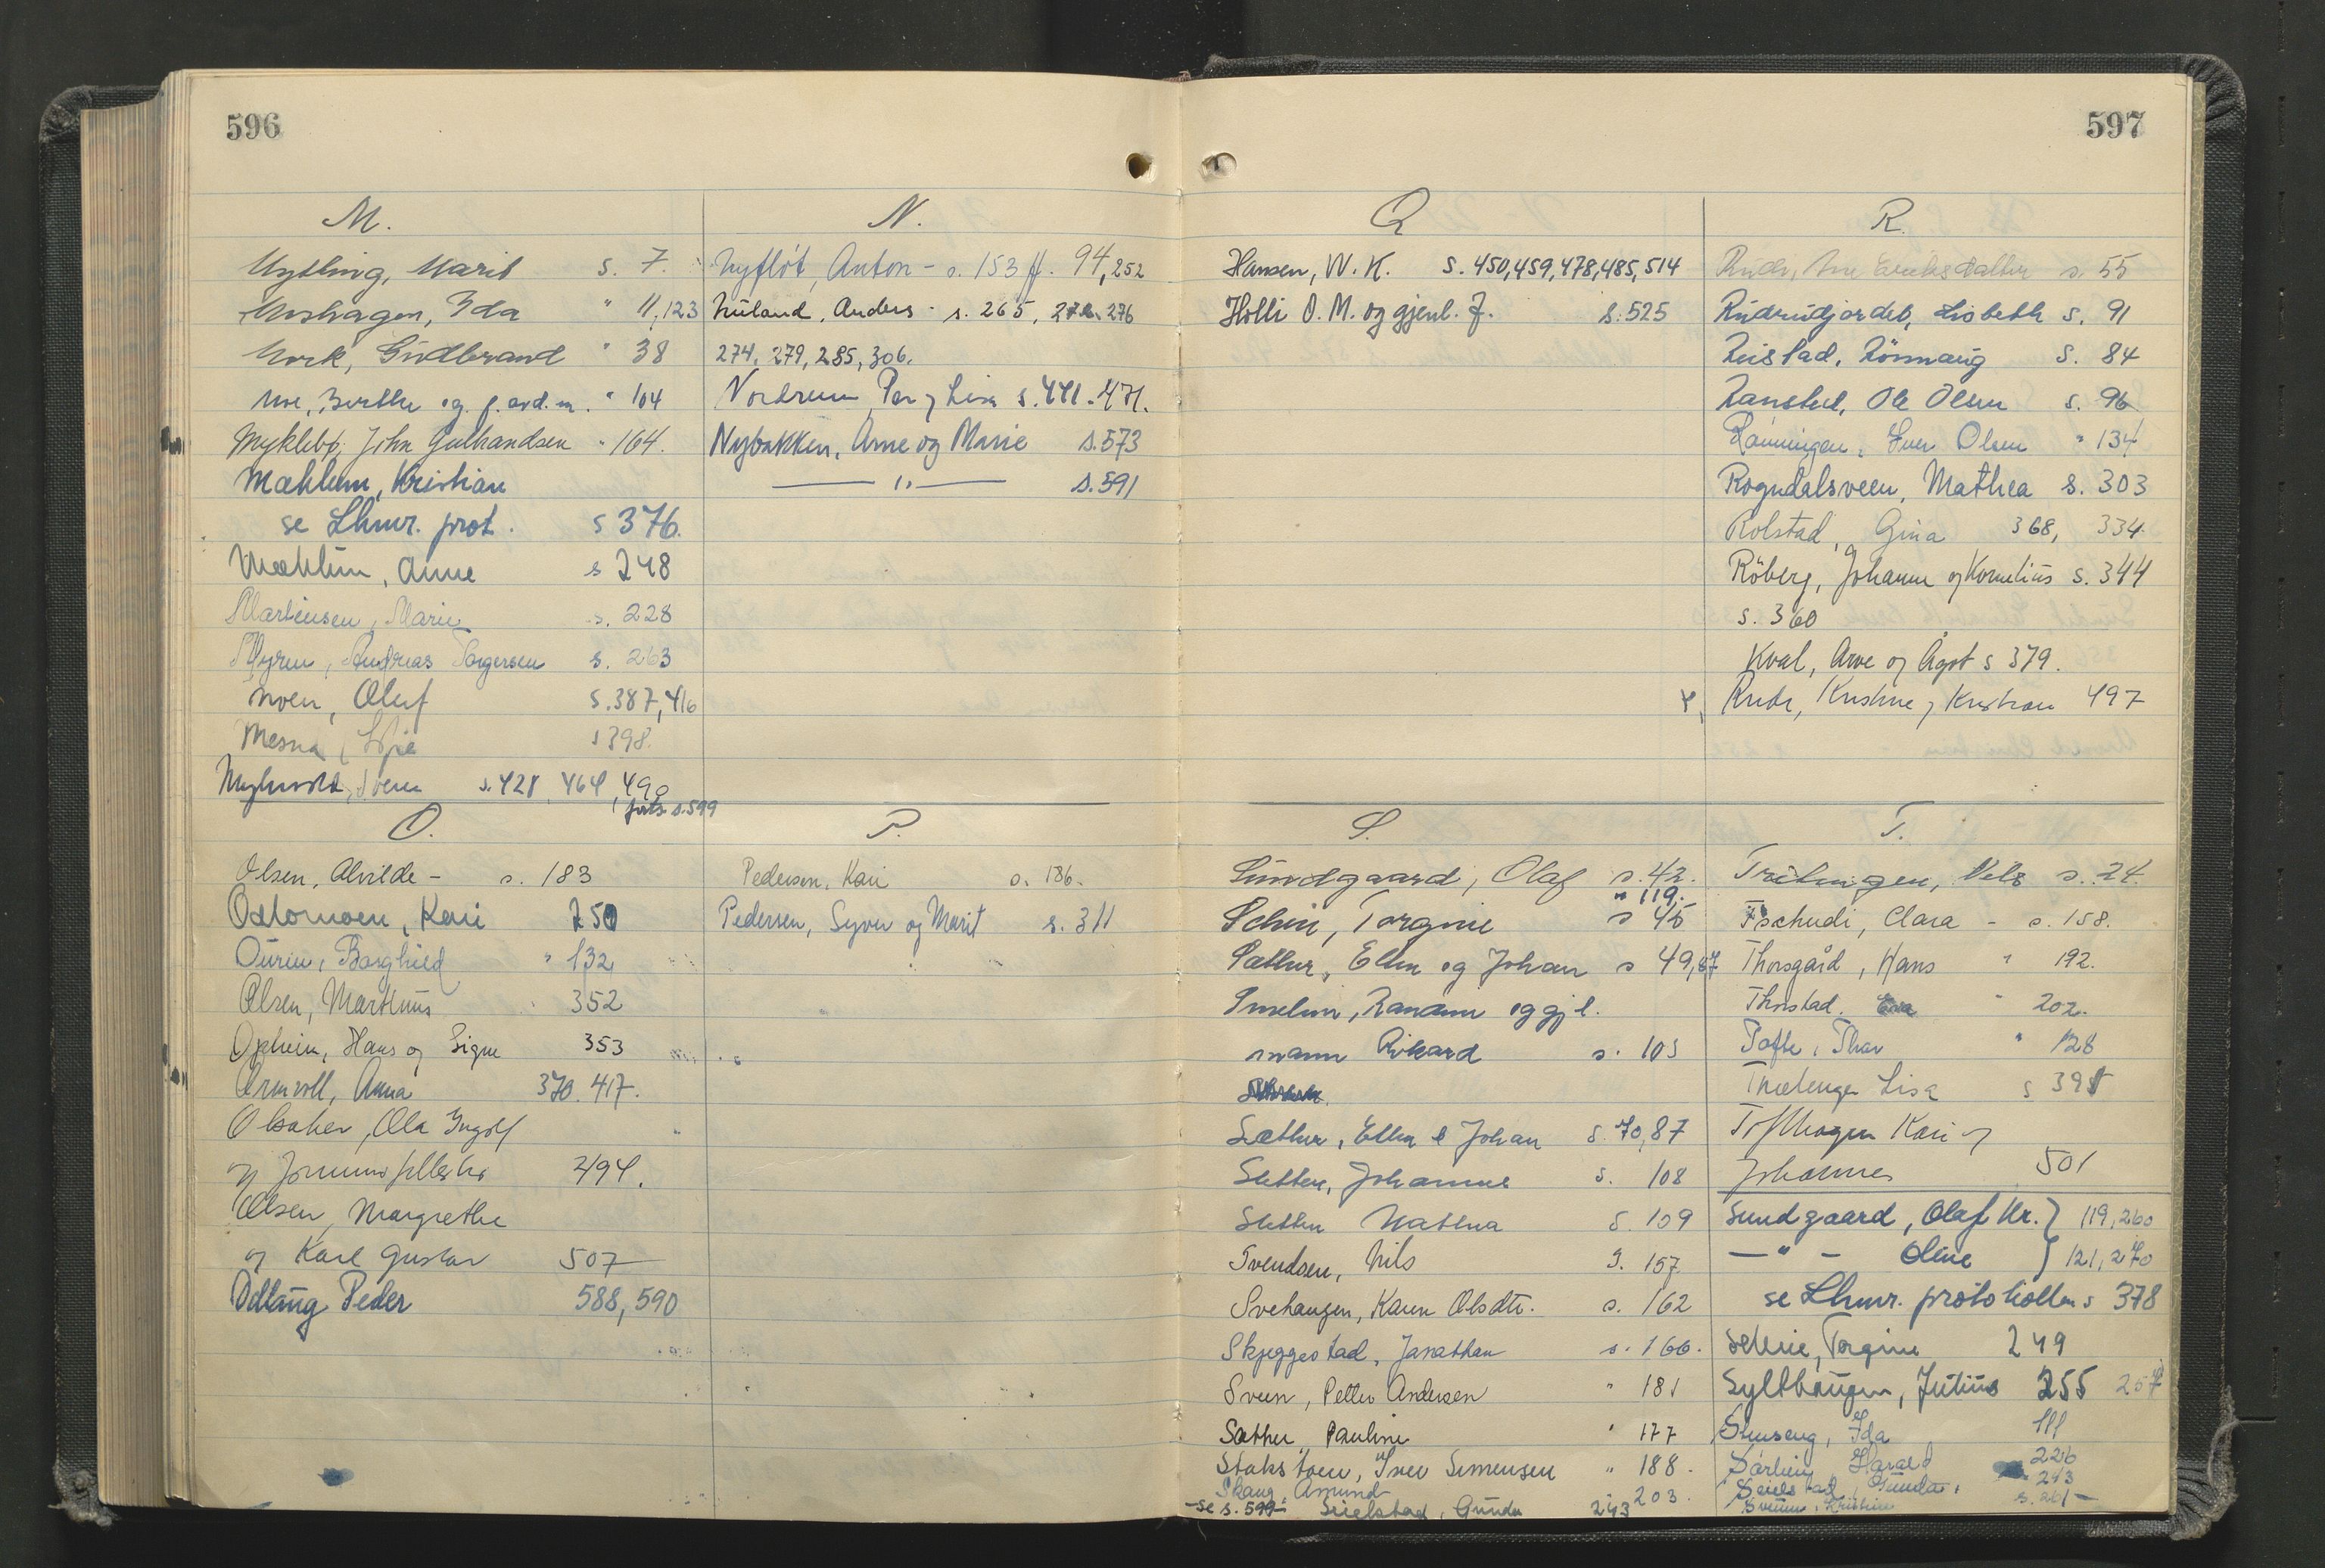 596
M.
Mytting, Marit s. 7.
Moshagen, Ida " 11,123
Mork, Gudbrand " 38
Moe, Berthe og f. avd. m. " 104
Myklebø, John Gulbrandsen " 164.
Mæhlum, Kristian
se Lhmr. prot. s 376.
Mæhlum, Anne s 248
Martinsen, Marie s. 228
Myren, Andreas Torgersen s. 263
Moen, Oluf s. 387, 416
Mesna, s 398.
Svein s. 428, 464, 490
forts. s. 599
N.
Nyfløt, Anton - s. 153 ff. 94, 252
Anders - s. 265, 276
274, 279, 285, 306.
Nordrum Per og Lina s. 441 - 471.
Nybakken, Arne og Marie s. 573
— " — s. 591
O.
Olsen, Alvilde - s. 183
Ostomoen, Kari 250
Ourin, Borghild " 132
Olsen, Marthius " 352
Opheim, Hans og Signe 353
Anna 370. 417.
Olsaker, Ola Ingolf
og 494.
Olsen, Margrethe
og Karl Gustav 507
Odlaug Peder 588, 590
P.
Pedersen, Kari s. 186.
Pedersen, Syver og Marit s. 311
597
Q
Hansen, W. K. s. 450, 459, 478, 485, 514
Holli O. M. og gjenl. f. s. 525
R.
Rudi, s. 55
Rudrudjordet, Lisbeth s. 91
Reistad, Rönnaug s. 84
Ranstad, Ole Olsen s. 96
Rönningen, Iver Olsen " 134
Rogndalsveen, Mathea s. 303
Rolstad, Gina 368, 334.
Röberg, Johanne og Kornelius s. 344
s. 360
Kval, Arve og Ågot s 379.
Kristine og Kristian 497
S.
Sundgaard, Olaf s. 42.
" 119.
Torgine s 45
Sæther, Ellen og Johan s 49, 87
og gjl.
mann Rikard s. 103
Sæther, Ellen & Johan s. 70, 87
Sletten, Johannes s. 108
Sletten Mathea s. 109
Svendsen, Nils s. 157
Svehaugen, Karen Olsdtr. s. 162
Skjeggestad, Jonathan s. 166.
Sveen, Petter Andersen " 181
Sæther, Pauline " 177
Iver Simensen " 188.
Skaug, Amund " 203.
— se s. 599 — Sielstad, Gunda 243
T.
Nils s. 24.
Tschudi, Clara - s. 158.
Thorsgård, Hans " 192.
Thorstad. " 202.
Tofte, Thor " 128
Lisa s 395
Kari og
Johannes 501
Sundgaard, Olaf Kr. } 119, 260
— " — Oline } 121, 270
se Lhmr. protokollen s 378
Torgine 249
Sylthaugen, Julius 255 257
Stenseng, Ida 111
Sørlien, Harald 226
Seielstad, Gunda, 243
Sveum, Kristine s. 261 —